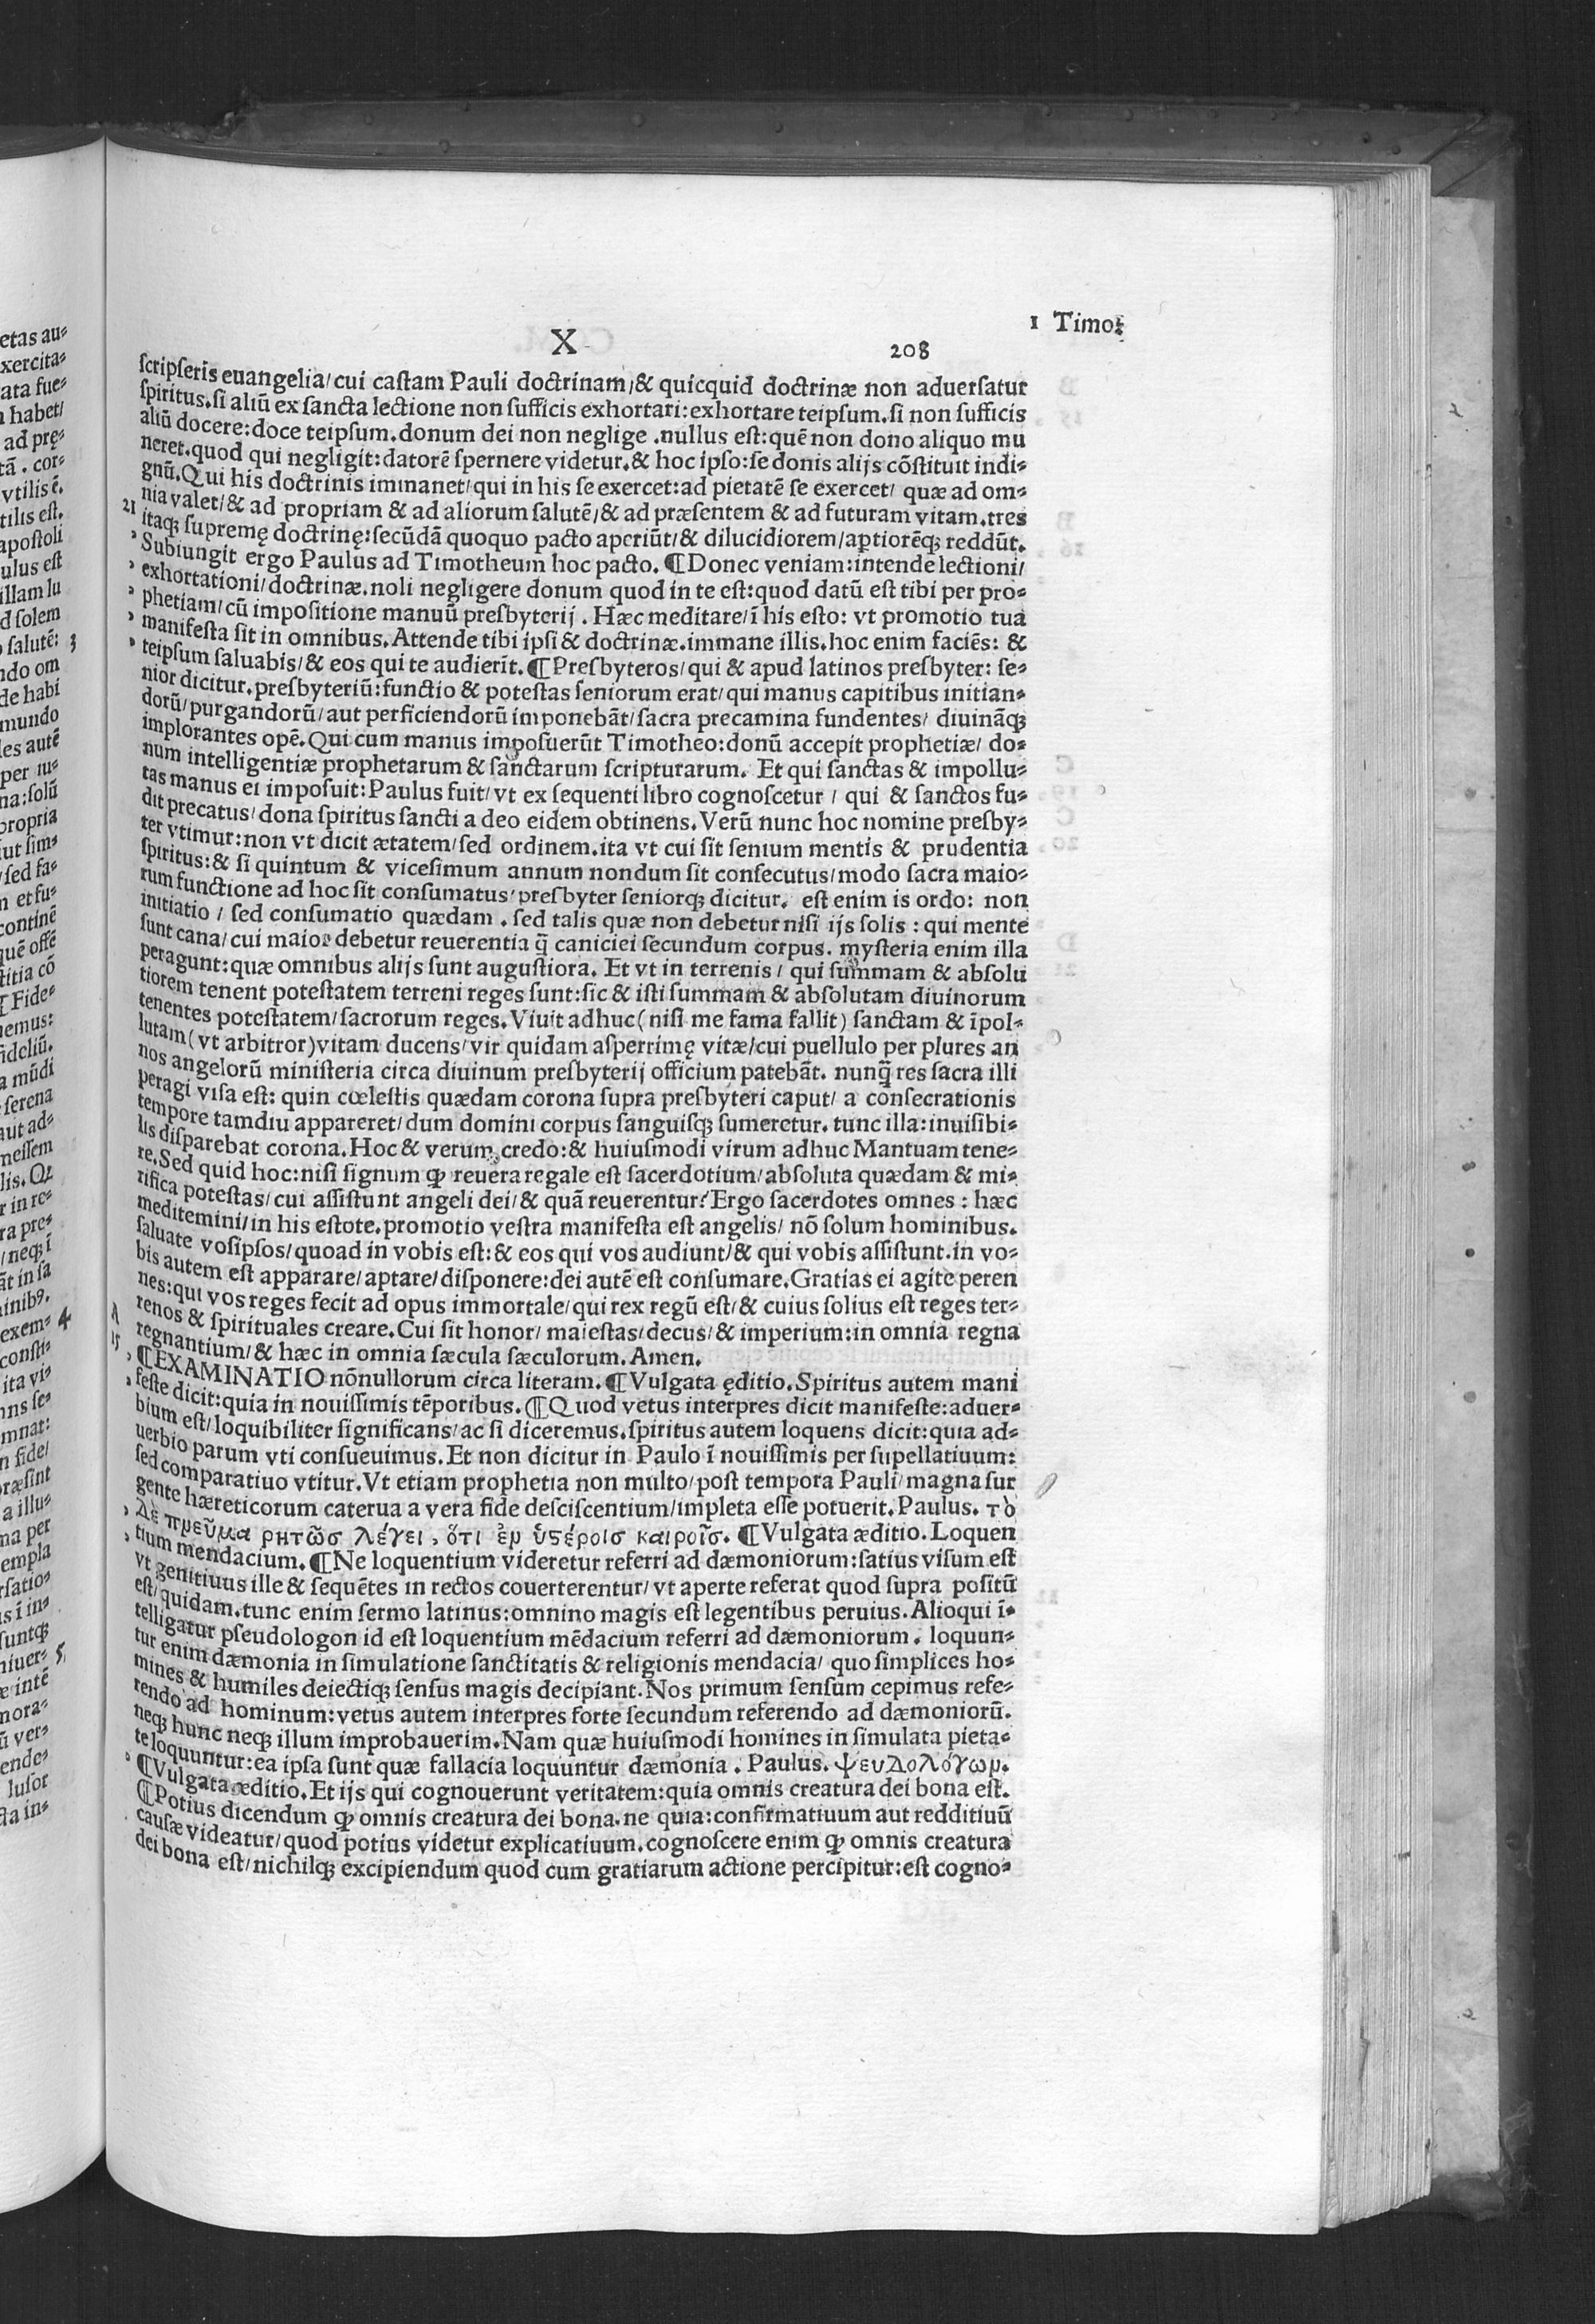 1 Timoꝫ
X
208
ſcripſeris euangelia/cui caſtam Pauli doctrinam/& quicquid doctrinæ non aduerſatur
ſpiritus.ſi aliū ex ſancta lectione non ſufficis exhortari:exhortare teipſum.ſi non ſufficis
aliū docere:doce teipſum.donum dei non neglige .nullus eſt:quē non dono aliquo mu
neret.quod qui negligit:datorē ſpernere videtur.& hoc ipſo:ſe donis alijs cōſtituit indi⸗
gnū.Qui his doctrinis immanet/qui in his ſe exercet:ad pietatē ſe exercet/ quæ ad om⸗
nia valet/& ad propriam & ad aliorum ſalutē/& ad præſentem & ad futuram vitam.tres
21 itaqꝫ ſupremę doctrinę:ſecūdā quoquo pacto aperiūt/& dilucidiorem/aptiorēqꝫ reddūt.
Subiungit ergo Paulus ad Timotheum hoc pacto. ¶Donec veniam:intende lectioni/
exhortationi/doctrinæ.noli negligere donum quod in te est:quod datū eſt tibi per pro⸗
phetiam/cū impoſitione manuū preſbyterij . Hæc meditare/ī his eſto: vt promotio tua
manifeſta ſit in omnibus.Attende tibi ipſi & doctrinæ.immane illis.hoc enim faciēs: &
teipſum ſaluabis/& eos qui te audierīt.¶Preſbyteros/qui & apud latinos preſbyter: ſe⸗
nior dicitur.preſbyteriū:functio & poteſtas ſeniorum erat/qui manus capitibus initian⸗
dorū/purgandorū/aut perficiendorū imponebāt/ſacra precamina fundentes/ diuināqꝫ
implorantes opē.Qui cum manus impoſuerūt Timotheo:donū accepit prophetiæ/ do⸗
num intelligentiæ prophetarum & ſanctarum ſcripturarum. Et qui ſanctas & impollu⸗
tas manus ei impoſuit:Paulus fuit/vt ex ſequenti libro cognoſcetur / qui & ſanctos fu⸗
dit precatus/dona ſpiritus ſancti a deo eidem obtinens.Verū nunc hoc nomine preſby⸗
ter vtimur:non vt dicit ætatem/ſed ordinem.ita vt cui ſit ſenium mentis & prudentia
ſpiritus:& ſi quintum & viceſimum annum nondum ſit conſecutus/modo ſacra maio⸗
rum functione ad hoc ſit conſumatus/preſbyter ſeniorqꝫ dicitur. eſt enim is ordo: non
initiatio / ſed conſumatio quædam . ſed talis quæ non debetur niſi ijs ſolis : qui mente
ſunt cana/cui maior debetur reuerentia q̄ caniciei ſecundum corpus. myſteria enim illa
peragunt:quæ omnibus alijs ſunt auguſtiora. Et vt in terrenis / qui ſummam & abſolu
tiorem tenent poteſtatem terreni reges ſunt:ſic & iſti ſummam & abſolutam diuinorum
tenentes poteſtatem/ſacrorum reges.Viuit adhuc(niſi me fama fallit) ſanctam & īpol⸗
lutam(vt arbitror)vitam ducens/vir quidam aſperrimę vitæ/cui puellulo per plures an
nos angelorū miniſteria circa diuinum preſbyterij officium patebāt. nunq̄ res ſacra illi
peragi viſa eſt: quin cœleſtis quædam corona ſupra preſbyteri caput/ a conſecrationis
tempore tamdiu appareret/dum domini corpus ſanguiſqꝫ ſumeretur. tunc illa:inuiſibi⸗
lis diſparebat corona.Hoc & verum credo:& huiuſmodi virum adhuc Mantuam tene⸗
re.Sed quid hoc:niſi ſignum ꝙ reuera regale eſt ſacerdotium/abſoluta quædam & mi⸗
rifica poteſtas/cui aſſiſtunt angeli dei/& quā reuerentur?Ergo ſacerdotes omnes : hæc
meditemini/in his eſtote.promotio veſtra manifeſta eſt angelis/ nō ſolum hominibus.
ſaluate voſipſos/quoad in vobis eſt:& eos qui vos audiunt/& qui vobis aſſiſtunt.in vo⸗
bis autem eſt apparare/aptare/diſponere:dei autē eſt conſumare.Gratias ei agite peren
nes:qui vos reges fecit ad opus immortale/qui rex regū eſt/& cuius ſolius eſt reges ter⸗
renos & ſpirituales creare.Cui ſit honor/ maieſtas/decus/& imperium:in omnia regna
regnantium/& hæc in omnia ſæcula ſæculorum.Amen.
¶EXAMINATIO nōnullorum circa literam.¶Vulgata ęditio.Spiritus autem mani
feſte dicit:quia in nouiſſimis tēporibus.¶Quod vetus interpres dicit manifeſte:aduer⸗
bium eſt/loquibiliter ſignificans/ac ſi diceremus.ſpiritus autem loquens dicit:quia ad⸗
uerbio parum vti conſueuimus.Et non dicitur in Paulo ī nouiſſimis per ſupellatiuum:
ſed comparatiuo vtitur.Vt etiam prophetia non multo/poſt tempora Pauli/magna ſur
gente hæreticorum caterua a vera fide deſciſcentium/impleta eſſe potuerit.Paulus. τὸ
Δὲ πνεῦμα ρητῶσ λέγει , ὅτι ἐν ὑϛέροισ καιροῖσ. ¶Vulgata æditio.Loquen
tium mendacium.¶Ne loquentium videretur referri ad dæmoniorum:ſatius viſum eſt
vt genitiuus ille & ſequētes in rectos couerterentur/vt aperte referat quod ſupra poſitū
eſt/quidam.tunc enim ſermo latinus:omnino magis eſt legentibus peruius.Alioqui ī⸗
telligatur pſeudologon id eſt loquentium mēdacium referri ad dæmoniorum. loquun⸗
tur enim dæmonia in ſimulatione ſanctitatis & religionis mendacia/ quo ſimplices ho⸗
mines & humiles deiectiqꝫ ſenſus magis decipiant.Nos primum ſenſum cepimus refe⸗
rendo ad hominum:vetus autem interpres forte ſecundum referendo ad dæmoniorū.
neqꝫ hunc neqꝫ illum improbauerim.Nam quæ huiuſmodi homines in ſimulata pieta⸗
te loquuntur:ea ipſa ſunt quæ fallacia loquuntur dæmonia . Paulus. ψευΔολόγων.
¶Vulgata æditio.Et ijs qui cognouerunt veritatem:quia omnis creatura dei bona eſt.
¶Potius dicendum ꝙ omnis creatura dei bona.ne quia:confirmatiuum aut redditiuū
cauſæ videatur/quod potius videtur explicatiuum.cognoſcere enim ꝙ omnis creatura
dei bona eſt/nichilqꝫ excipiendum quod cum gratiarum actione percipitur:eſt cogno⸗